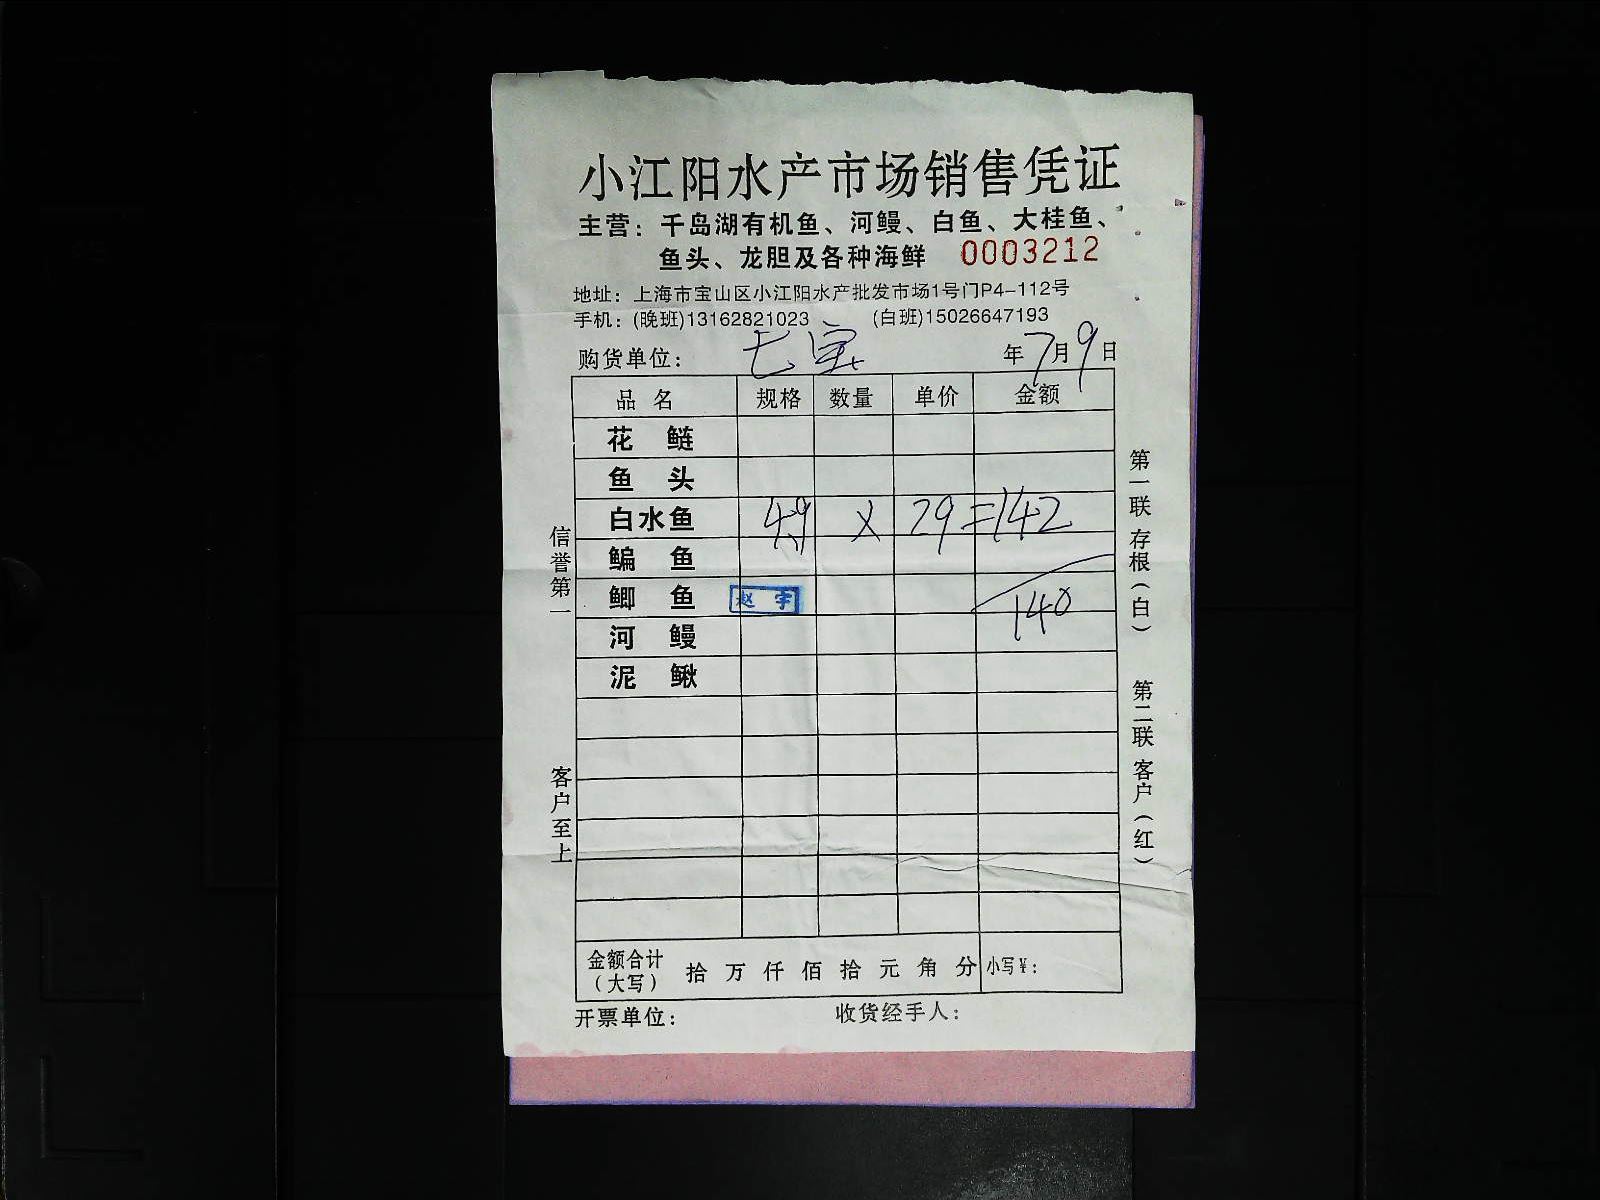 小江阳水产市场销售凭证
主营：千岛湖有机鱼、河鳗、白鱼、大桂鱼、
鱼头、龙胆及各种海鲜 0003212
地址：上海市宝山区小江阳水产批发市场1号门P4-112号
手机：(晚班)13162821023 (白班)15026647193
购货单位： 七宝 年7月9日
品名 规格 数量 单价 金额
花鲢
鱼头
白水鱼 4.9 X 29=142
鳊鱼
鲫鱼 赵宇 140
河鳗
泥鳅
金额合计（大写） 拾万仟佰拾元角分 小写¥：
开票单位： 收货经手人：
信誉第一
客户至上
第一联 存根（白）
第二联 客户（红）